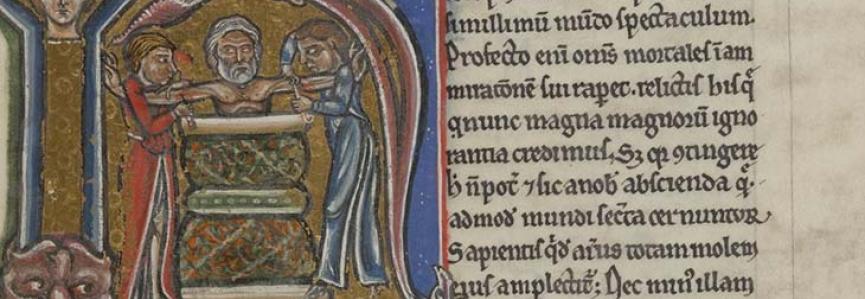 simillimū mūdo spectaculum.
Profecto enī om̄s mortales ī am
miratōnē sui raꝑet. relictis his q̄
q nunc magna magnorū igno
rantia credimus, Sꝫ qꝛ ꝯtingere
h n̄ pot̄ ⁊ sic a nob̄ abscienda q̄.
admod̄ mundi secta cernuntur
Sapientis qd̄ aīus totam molem
eius amplectit᷑; Nec min᷒ illam